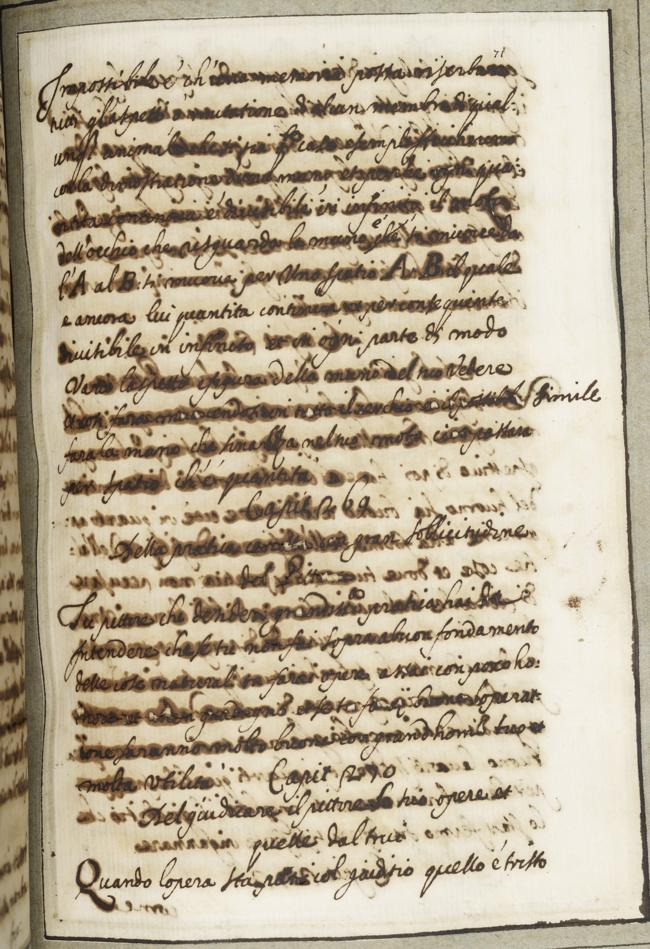 71
Impossibile è ch' alcuna memoria possa riserbare
tutti gl'aspetti o mutatione d'alcun membro di qual:
unq. animale che si sia q.to caso esemplificheremo
colla dimostratione d'una mano et perche ogni qua:
ntita continua è divisibile in infinito il moto
dell'occhio che risguarda la mano e che si move da
l'A al B. si muova per uno spatio A. B. il quale
e ancora lui quantita continua et per conseguente
divisibile in infinito et in ogni parte di modo
Varia l'aspetto e figura della mano nel suo Vedere
e cosi fara movendosi in tutto il cerchio e il simile
fara la mano che s'inalza nel suo moto cioè passara
per spatio ch'è quantita
Capit.o 69
Della pratica cercata con gran sollicitudine
dal Pittore
Tu pittore che desideri grandissima pratica hai da
Intendere che se tu non fai sopra a buon fondamento
delle cose naturali tu farai opere assai con poco ho:
nore et men guadagno e se le fai buone l'operat
ione saranno molte e buone con grand honor tuo et
molta Utilita
Capit.o 70
Del giudicare il pittore le sue opere et
quelle d'altrui
Quando lopera sta pari col giuditio quello è tristo
come